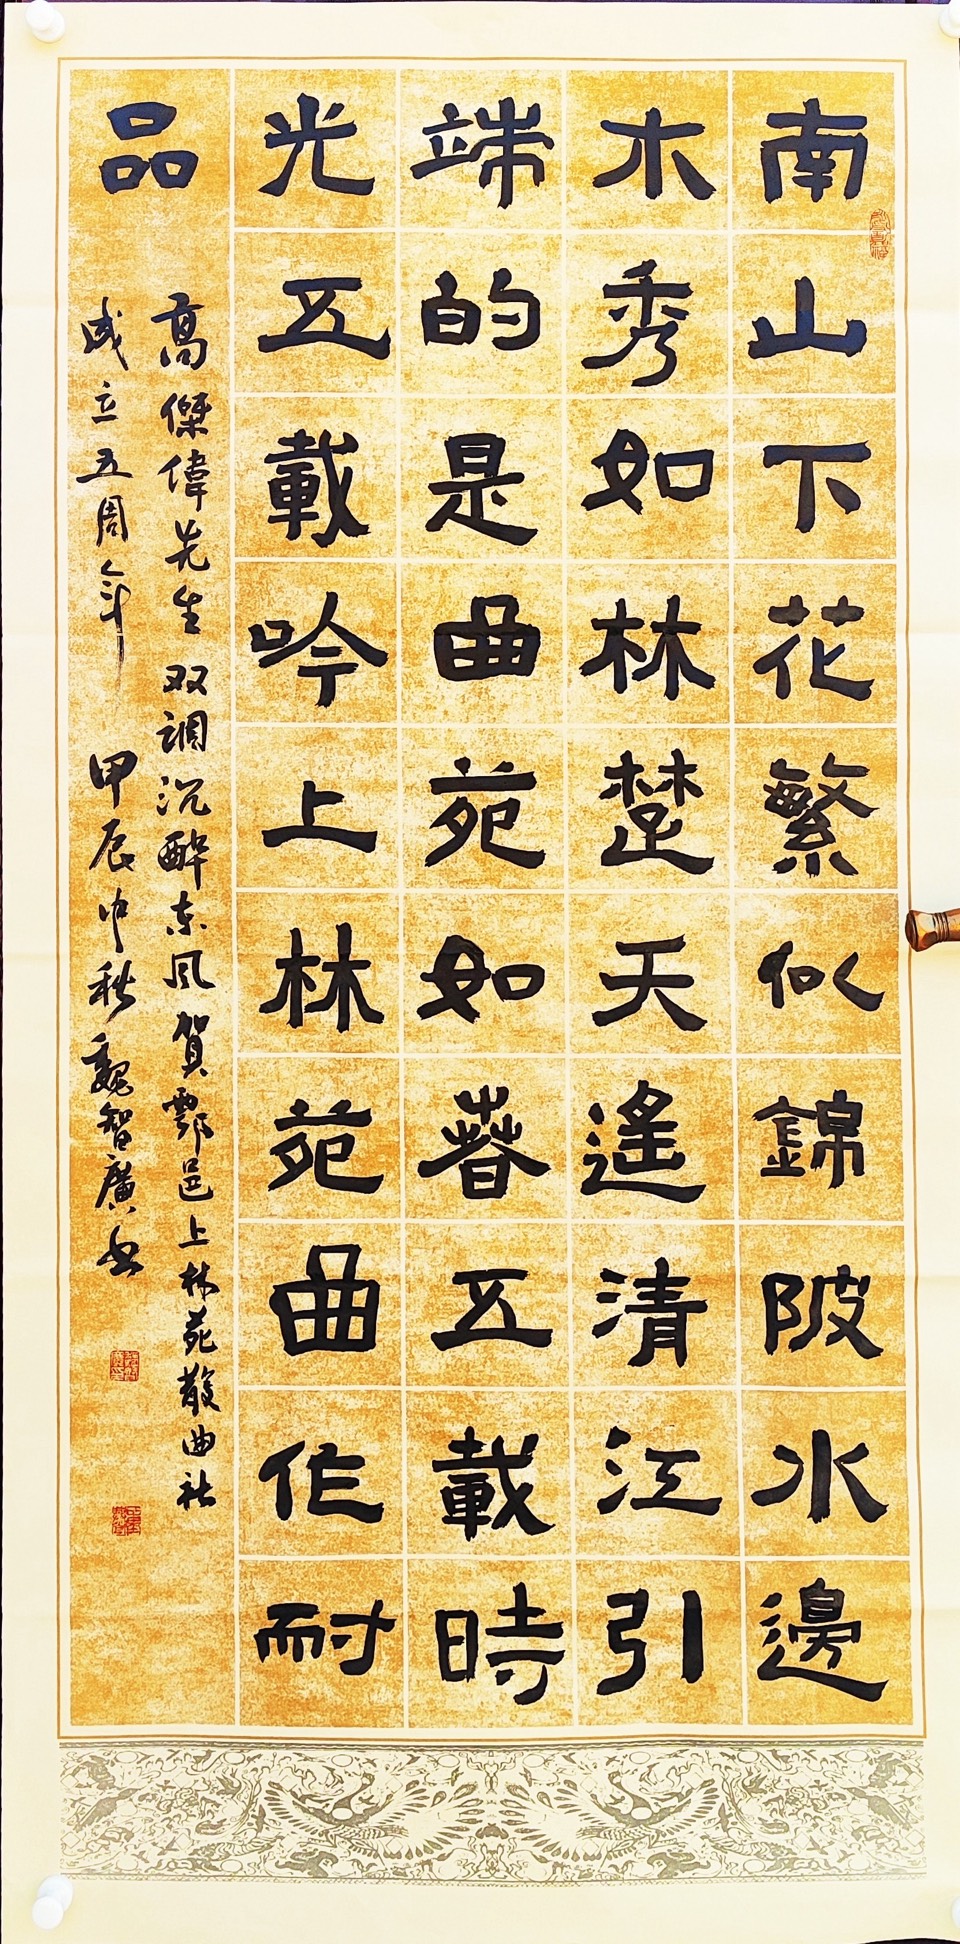 南山下花繁似錦陂水邊
木秀如林楚天遙清江引
端的是曲苑如蓉五載時
光五載吟上林苑曲作耐
品
高傑偉先生双調沉醉东风賀鄠邑上林苑散曲社
成立五周年 甲辰中秋魏智廣书